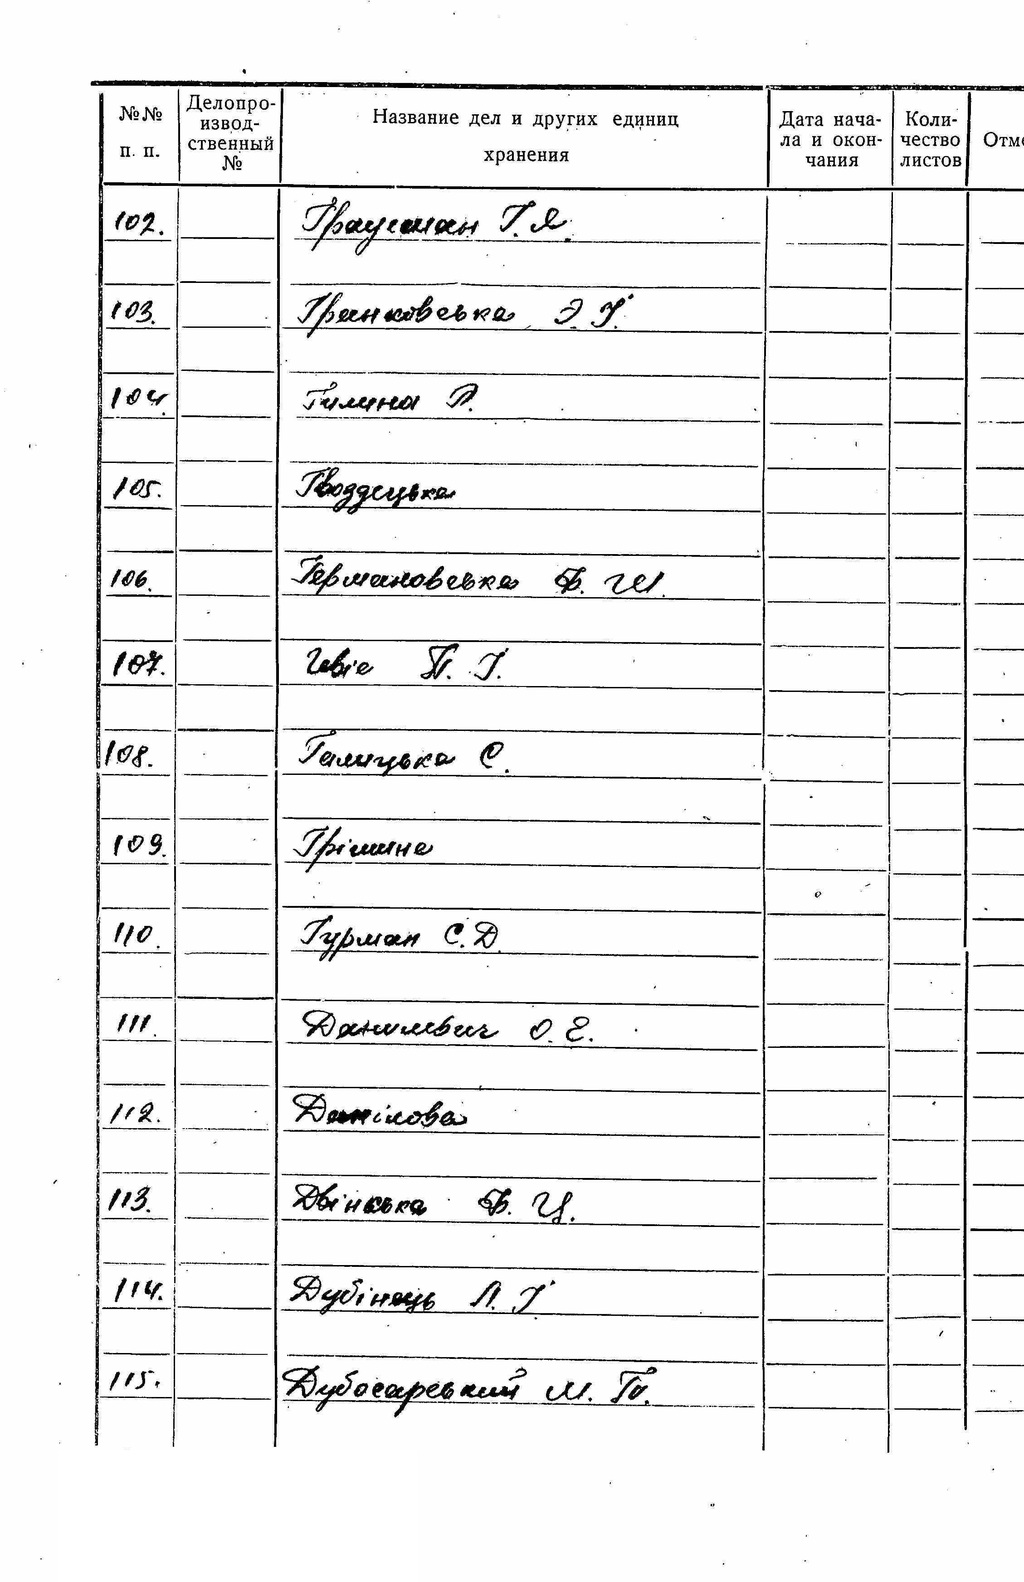 №№ п. п.
Делопро-
извод-
ственный
№
Название дел и других единиц
хранения
Дата нача-
ла и окон-
чания
Коли-
чество
листов
Отме
102. Граусман Г. Я.
103. Гранковська Э. Г.
104. Гилина
105. Гвоздецька
106. Германовська Ф. Ш.
107. П. Г.
108. Галицька С.
109. Грімина
110. Гурман С. Д.
111. Данилевич О. Е.
112. Данілова
113. Двінська Ф. Ц.
114. Дубінець Л. Г.
115. Дубосарський М.